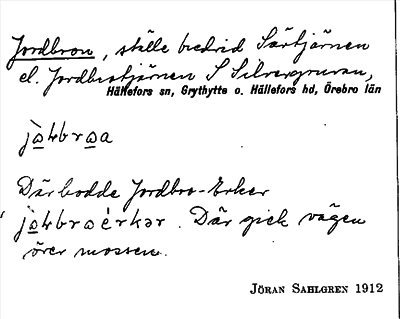 Jordbron, ställe bredvid Särtjärnen
el. Jordbrotjärnen S Silvergruvan,
Hällefors sn, Grythytte o. Hällefors hd, Örebro län
Där bodde Jordbro-Erker
. Där gick vägen
över mossen.
JÖRAN SAHLGREN 1912